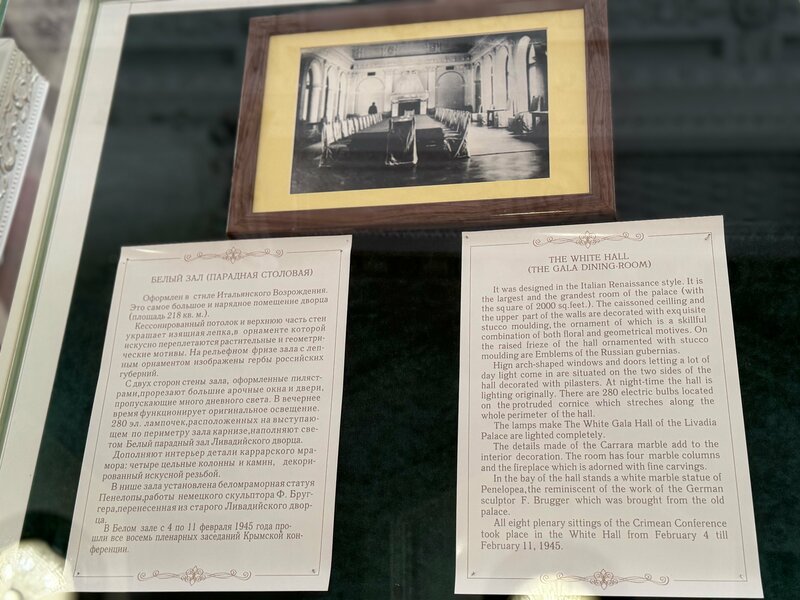 БЕЛЫЙ ЗАЛ (ПАРАДНАЯ СТОЛОВАЯ)
Оформлен в стиле Итальянского Возрождения.
Это самое большое и нарядное помещение дворца
(площадь 218 кв. м.).
Кессонированный потолок и верхнюю часть стен
украшает изящная лепка, в орнаменте которой
искусно переплетаются растительные и геометри-
ческие мотивы. На рельефном фризе зала с леп-
ным орнаментом изображены гербы российских
губерний.
С двух сторон стены зала, оформленные пиляст-
рами, прорезают большие арочные окна и двери,
пропускающие много дневного света. В вечернее
время функционирует оригинальное освещение.
280 эл. лампочек, расположенных на выступаю-
щем по периметру зала карнизе, наполняют све-
том Белый парадный зал Ливадийского дворца.
Дополняют интерьер детали каррарского мра-
мора: четыре цельные колонны и камин, декори-
рованный искусной резьбой.
В нише зала установлена беломраморная статуя
Пенелопы, работы немецкого скульптора Ф. Бруг-
гера, перенесенная из старого Ливадийского двор-
ца.
В Белом зале с 4 по 11 февраля 1945 года про-
шли все восемь пленарных заседаний Крымской кон-
ференции.
THE WHITE HALL
(THE GALA DINING-ROOM)
It was designed in the Italian Renaissance style. It is
the largest and the grandest room of the palace (with
the square of 2000 sq.feet.). The caissoned ceilling and
the upper part of the walls are decorated with exquisite
stucco moulding, the ornament of which is a skillful
combination of both floral and geometrical motives. On
the raised frieze of the hall ornamented with stucco
moulding are Emblems of the Russian gubernias.
Hign arch-shaped windows and doors letting a lot of
day light come in are situated on the two sides of the
hall decorated with pilasters. At night-time the hall is
lighting originally. There are 280 electric bulbs located
on the protruded cornice which streches along the
whole perimeter of the hall.
The lamps make The White Gala Hall of the Livadia
Palace are lighted completely.
The details made of the Carrara marble add to the
interior decoration. The room has four marble columns
and the fireplace which is adorned with fine carvings.
In the bay of the hall stands a white marble statue of
Penelopea, the reminiscent of the work of the German
sculptor F. Brugger which was brought from the old
palace.
All eight plenary sittings of the Crimean Conference
took place in the White Hall from February 4 till
February 11, 1945.